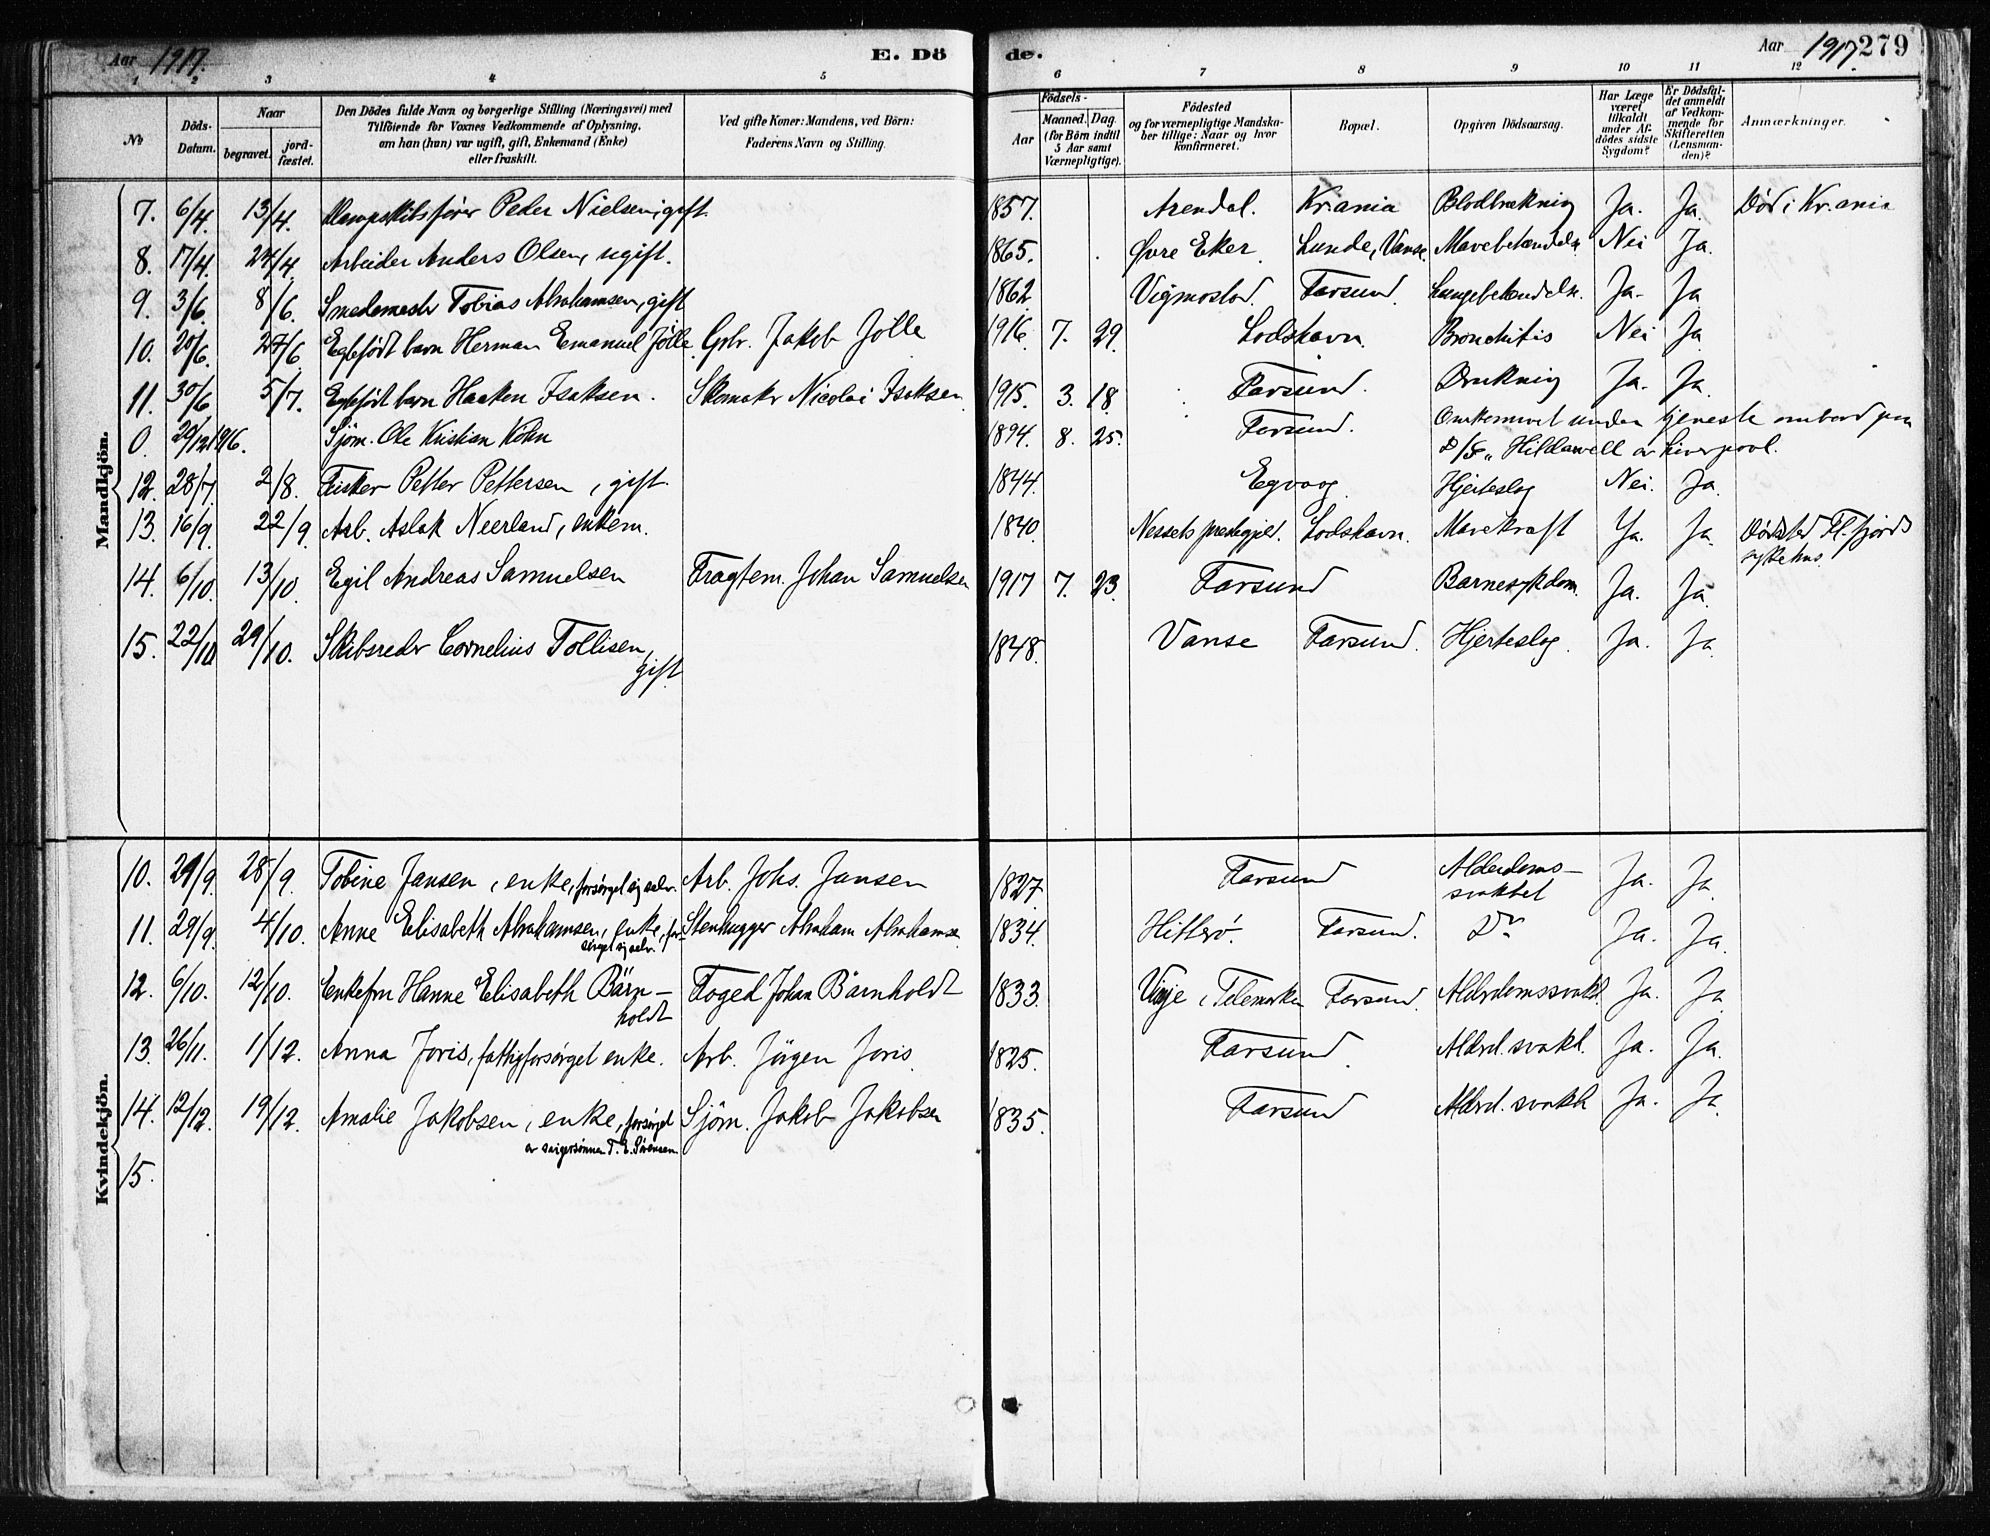 Aar 1917. E. Döde. Aar 1917. 279
1 2 3 4 5 6 7 8 9 10 11 12
No
Döds-Datum.
Naar
begravet.
jord-fæstet.
Den Dödes fulde Navn og borgerlige Stilling (Næringsvei) med
Tilföiende for Voxnes Vedkommende af Oplysning,
om han (hun) var ugift, gift, Enkemand (Enke)
eller fraskilt.
Ved gifte Koner: Mandens, ved Börn:
Faderens Navn og Stilling.
Födsels-
Aar
Maaned. Dag.
(for Börn indtil
5 Aar samt
Værnepligtige).
Födested
og for værnepligtige Mandska-
ber tillige: Naar og hvor
konfirmeret.
Bopæl.
Opgiven Dödsaarsag.
Har Læge
været
tilkaldt
under Af-
dödes sidste
Sygdom?
Er Dödsfal-
det anmeldt
af Vedkom-
mende for
Skifteretten
(Lensman-
den)?
Anmærkninger.
Mandkjön.
7. 6/4. 13/4. Dampskibsfører Peder Nielsen, gift 1857. Arendal. Kr.ania Blodbrækning Ja. Ja. Død i Kr.ania
8. 17/4. 24/4. Arbeider Anders Olsen, ugift. 1865. Øvre Eker. Lunde, Vanse. Mavebetændels. Nei Ja.
9. 3/6. 8/6. Smedemestr Tobias Abrahamsen, gift 1862 Vigmostad. Farsund. Lungebetændels. Ja. Ja
10. 20/6. 27/6 Egtefödt barn Herman Emanuel Jölle Grbr. Jakob Jölle 1916 7. 29. Lodshavn. Bronchitis Nei Ja
11. 30/6. 5/7. Egtefödt barn Haaken Isaksen. Skomakr Nicolai Isaksen. 1915. 3. 18. Farsund. Drukning Ja. Ja.
0. 29/12 1916. Sjöm. Ole Kristian Köhn 1894. 8. 25. Farsund. Omkommet under tjeneste ombord paa
D/S „Hildawell av Liverpool.
12. 28/7 2/8. Fisker Petter Pettersen, gift. 1844. Egvaag. Hjerteslag Nei. Ja.
13. 16/9. 22/9. Arb. Aslak Neerland, enkem. 1840. Nessets prestegjeld. Lodshavn. Mavekræft Ja. Ja. Dødsted Fl.fjords
sykehus.
14. 6/10. 13/10. Egil Andreas Samuelsen Fragtem. Johan Samuelsen 1917 7. 23. Farsund Barnesykdom. Ja. Ja.
15. 22/10 29/10. Skibsreder Cornelius Tollisen,
gift 1848. Vanse Farsund. Hjerteslag. Ja. Ja.
Kvindekjön.
10. 21/9. 28/9. Tobine Jansen, enke, forsörget sig selv. Arb. Johs. Jansen 1827. Farsund Alderdoms-
svakhet Ja. Ja.
11. 29/9. 4/10. Anne Elisabeth Abrahamsen, enke, for-
sörget sig selv. Stenhugger Abraham Abrahamse 1834. Hitterö. Farsund. Do Ja. Ja.
12. 6/10. 12/10. Enkefru Hanne Elisabeth Bärn-
holdt Foged Johan Bärnholdt 1833. Vinje, Telemarken Farsund. Alderdomssvakh. Ja. Ja
13. 26/11. 1/12. Anna Joris, fattigforsörget enke. Arb. Jörgen Joris. 1825. Farsund. Alderd. svakh. Ja. Ja.
14. 12/12. 19/12. Amalie Jakobsen, enke, forsörget
av svigersönnen T. E. Sörensen. Sjöm. Jakob Jakobsen 1835. Farsund Alderd. svakh Ja. Ja.
15.